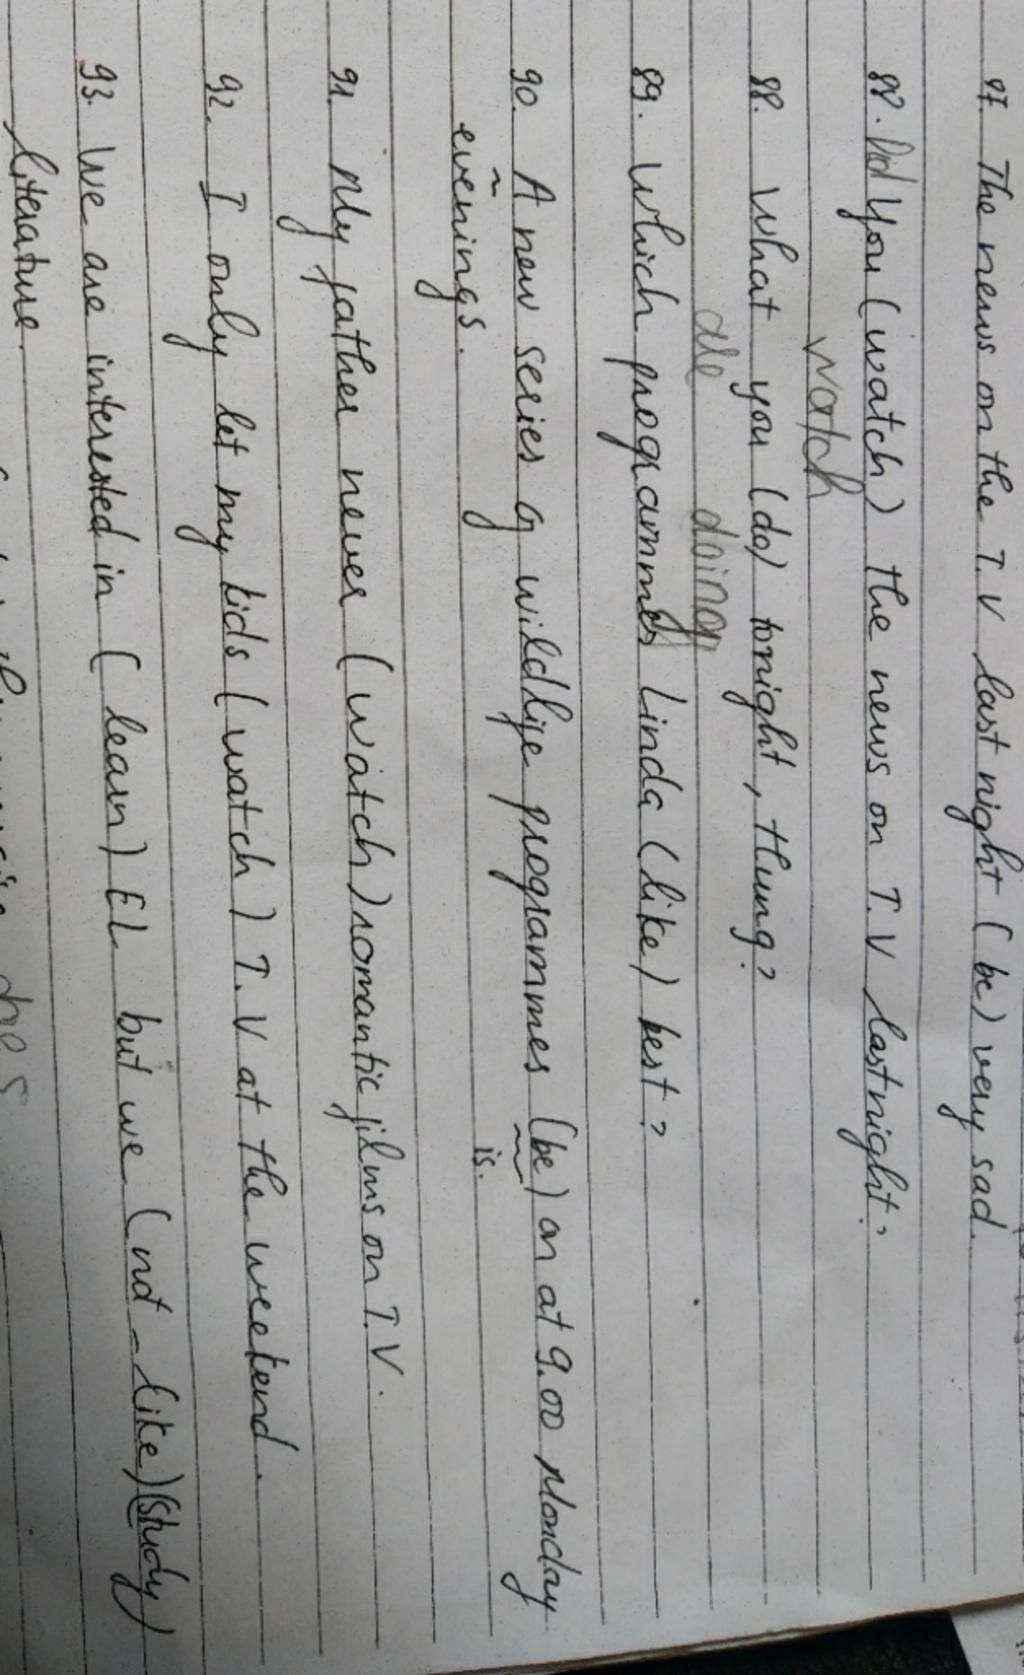 87. The news on the T.V last night (be) very sad.
88. Did you (watch) the news on T.V last night?
watch
88. What you (do) tonight, Hung?
are doing
89. Which programmes Linda (like) best?
90. A new series of wildlife programmes (be) on at 9.00 Monday
is.
evenings.
91. My father never (watch) romantic films on T.V.
92. I only let my kids (watch) T.V at the weekend.
93. We are interested in (learn) EL but we (not - like) (study)
literature.